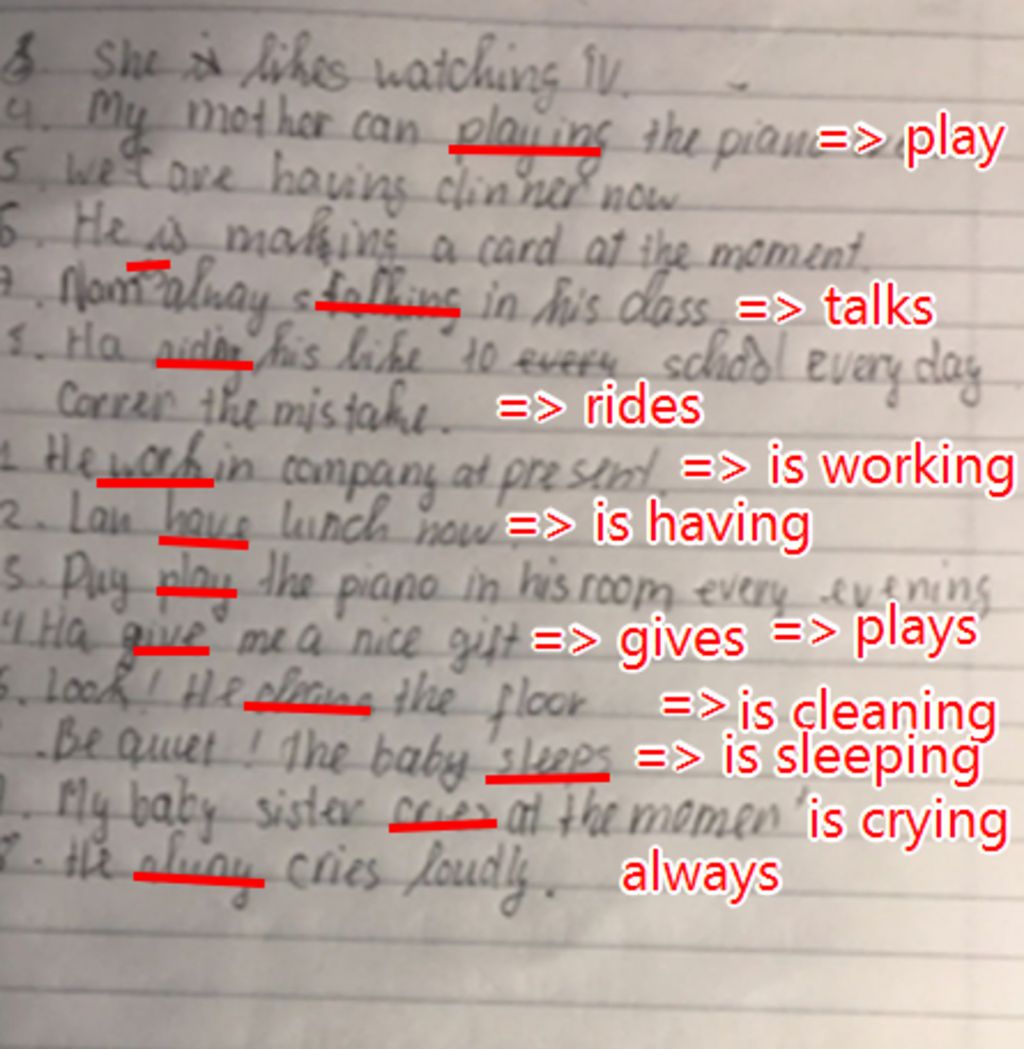 She likes watching TV.
4. My mother can playing the piano => play
5. we are having dinner now
6. He is making a card at the moment.
7. Nam alway s talking in his class => talks
8. Ha riding his bike to every school every day
Correct the mistake. => rides
1. He work in company at present. => is working
2. Lan have lunch now. => is having
3. Duy play the piano in his room every evening
4 Ha give me a nice gift => gives => plays
Look! He cleans the floor => is cleaning
Be quiet! The baby sleeps => is sleeping
My baby sister cries at the momen is crying
8. He alway cries loudly. always